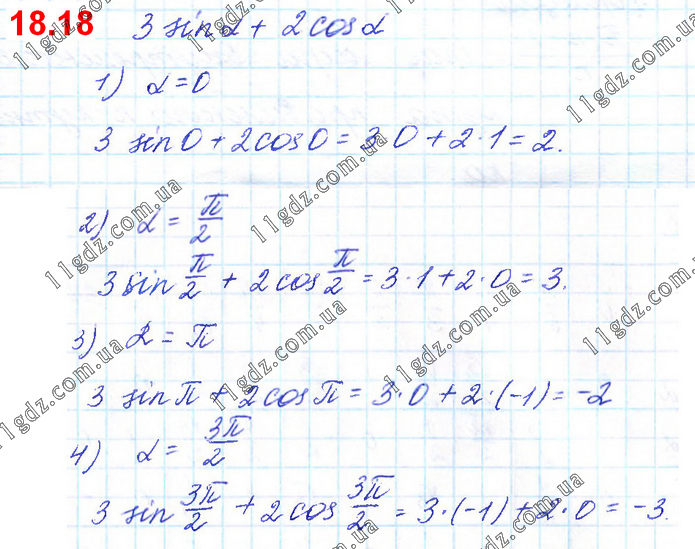 18.18
3 sin α + 2 cos α
1) α = 0
3 sin 0 + 2 cos 0 = 3·0 + 2·1 = 2.
2) α = π/2
3 sin π/2 + 2 cos π/2 = 3·1 + 2·0 = 3.
3) α = π
3 sin π + 2 cos π = 3·0 + 2·(-1) = -2
4) α = 3π/2
3 sin 3π/2 + 2 cos 3π/2 = 3·(-1) + 2·0 = -3.
11gdz.com.ua
11gdz.com.ua
11gdz.com.ua
11gdz.com.ua
11gdz.com.ua
11gdz.com.ua
11gdz.com.ua
11gdz.com.ua